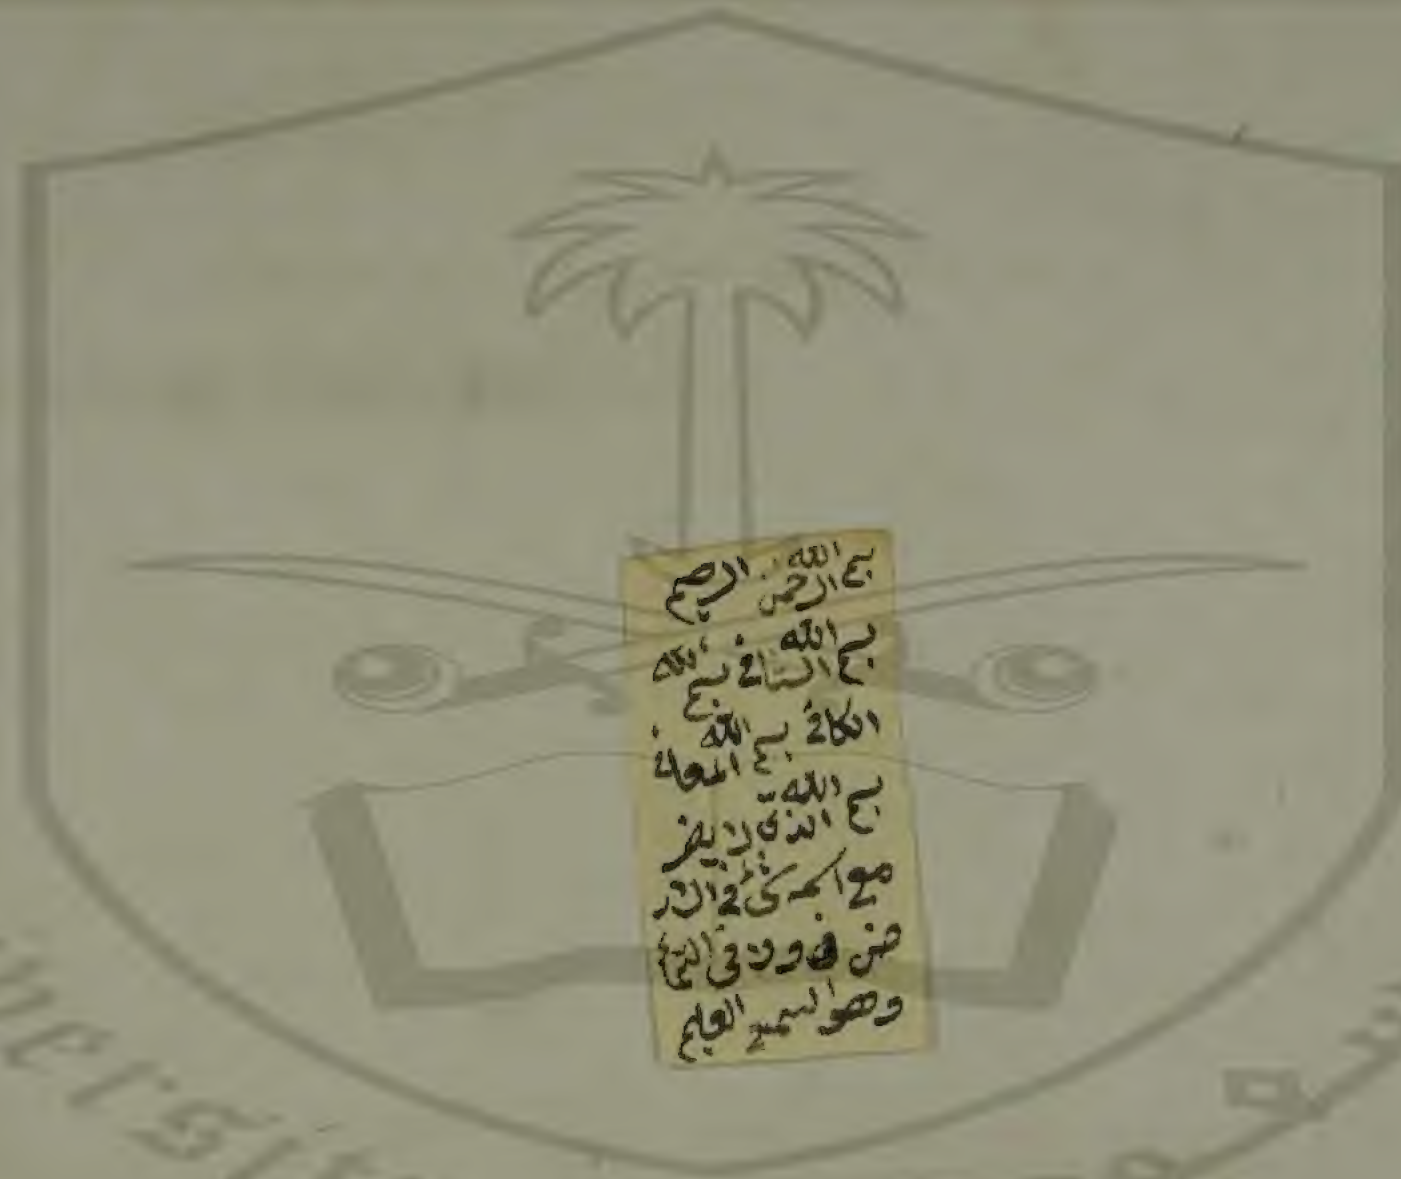 بسم الله الرحمن الرحيم
بسم الله الشافي بسم الله
الكافي بسم الله المعافي
بسم الله الذي لا يضر
مع اسمه شئ في الار
ض و لا في السماء
وهو السميع العليم